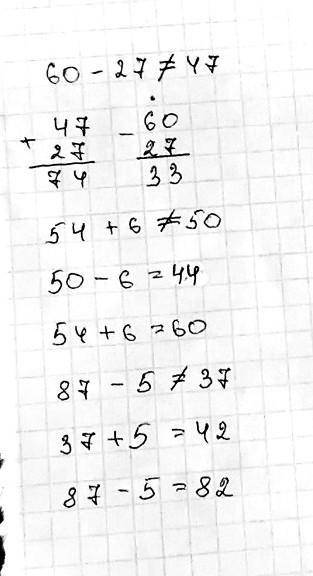 60 - 27 ≠ 47
+ 47 - 60
27 27
74 33
54 + 6 ≠ 50
50 - 6 = 44
54 + 6 = 60
87 - 5 ≠ 37
37 + 5 = 42
87 - 5 = 82